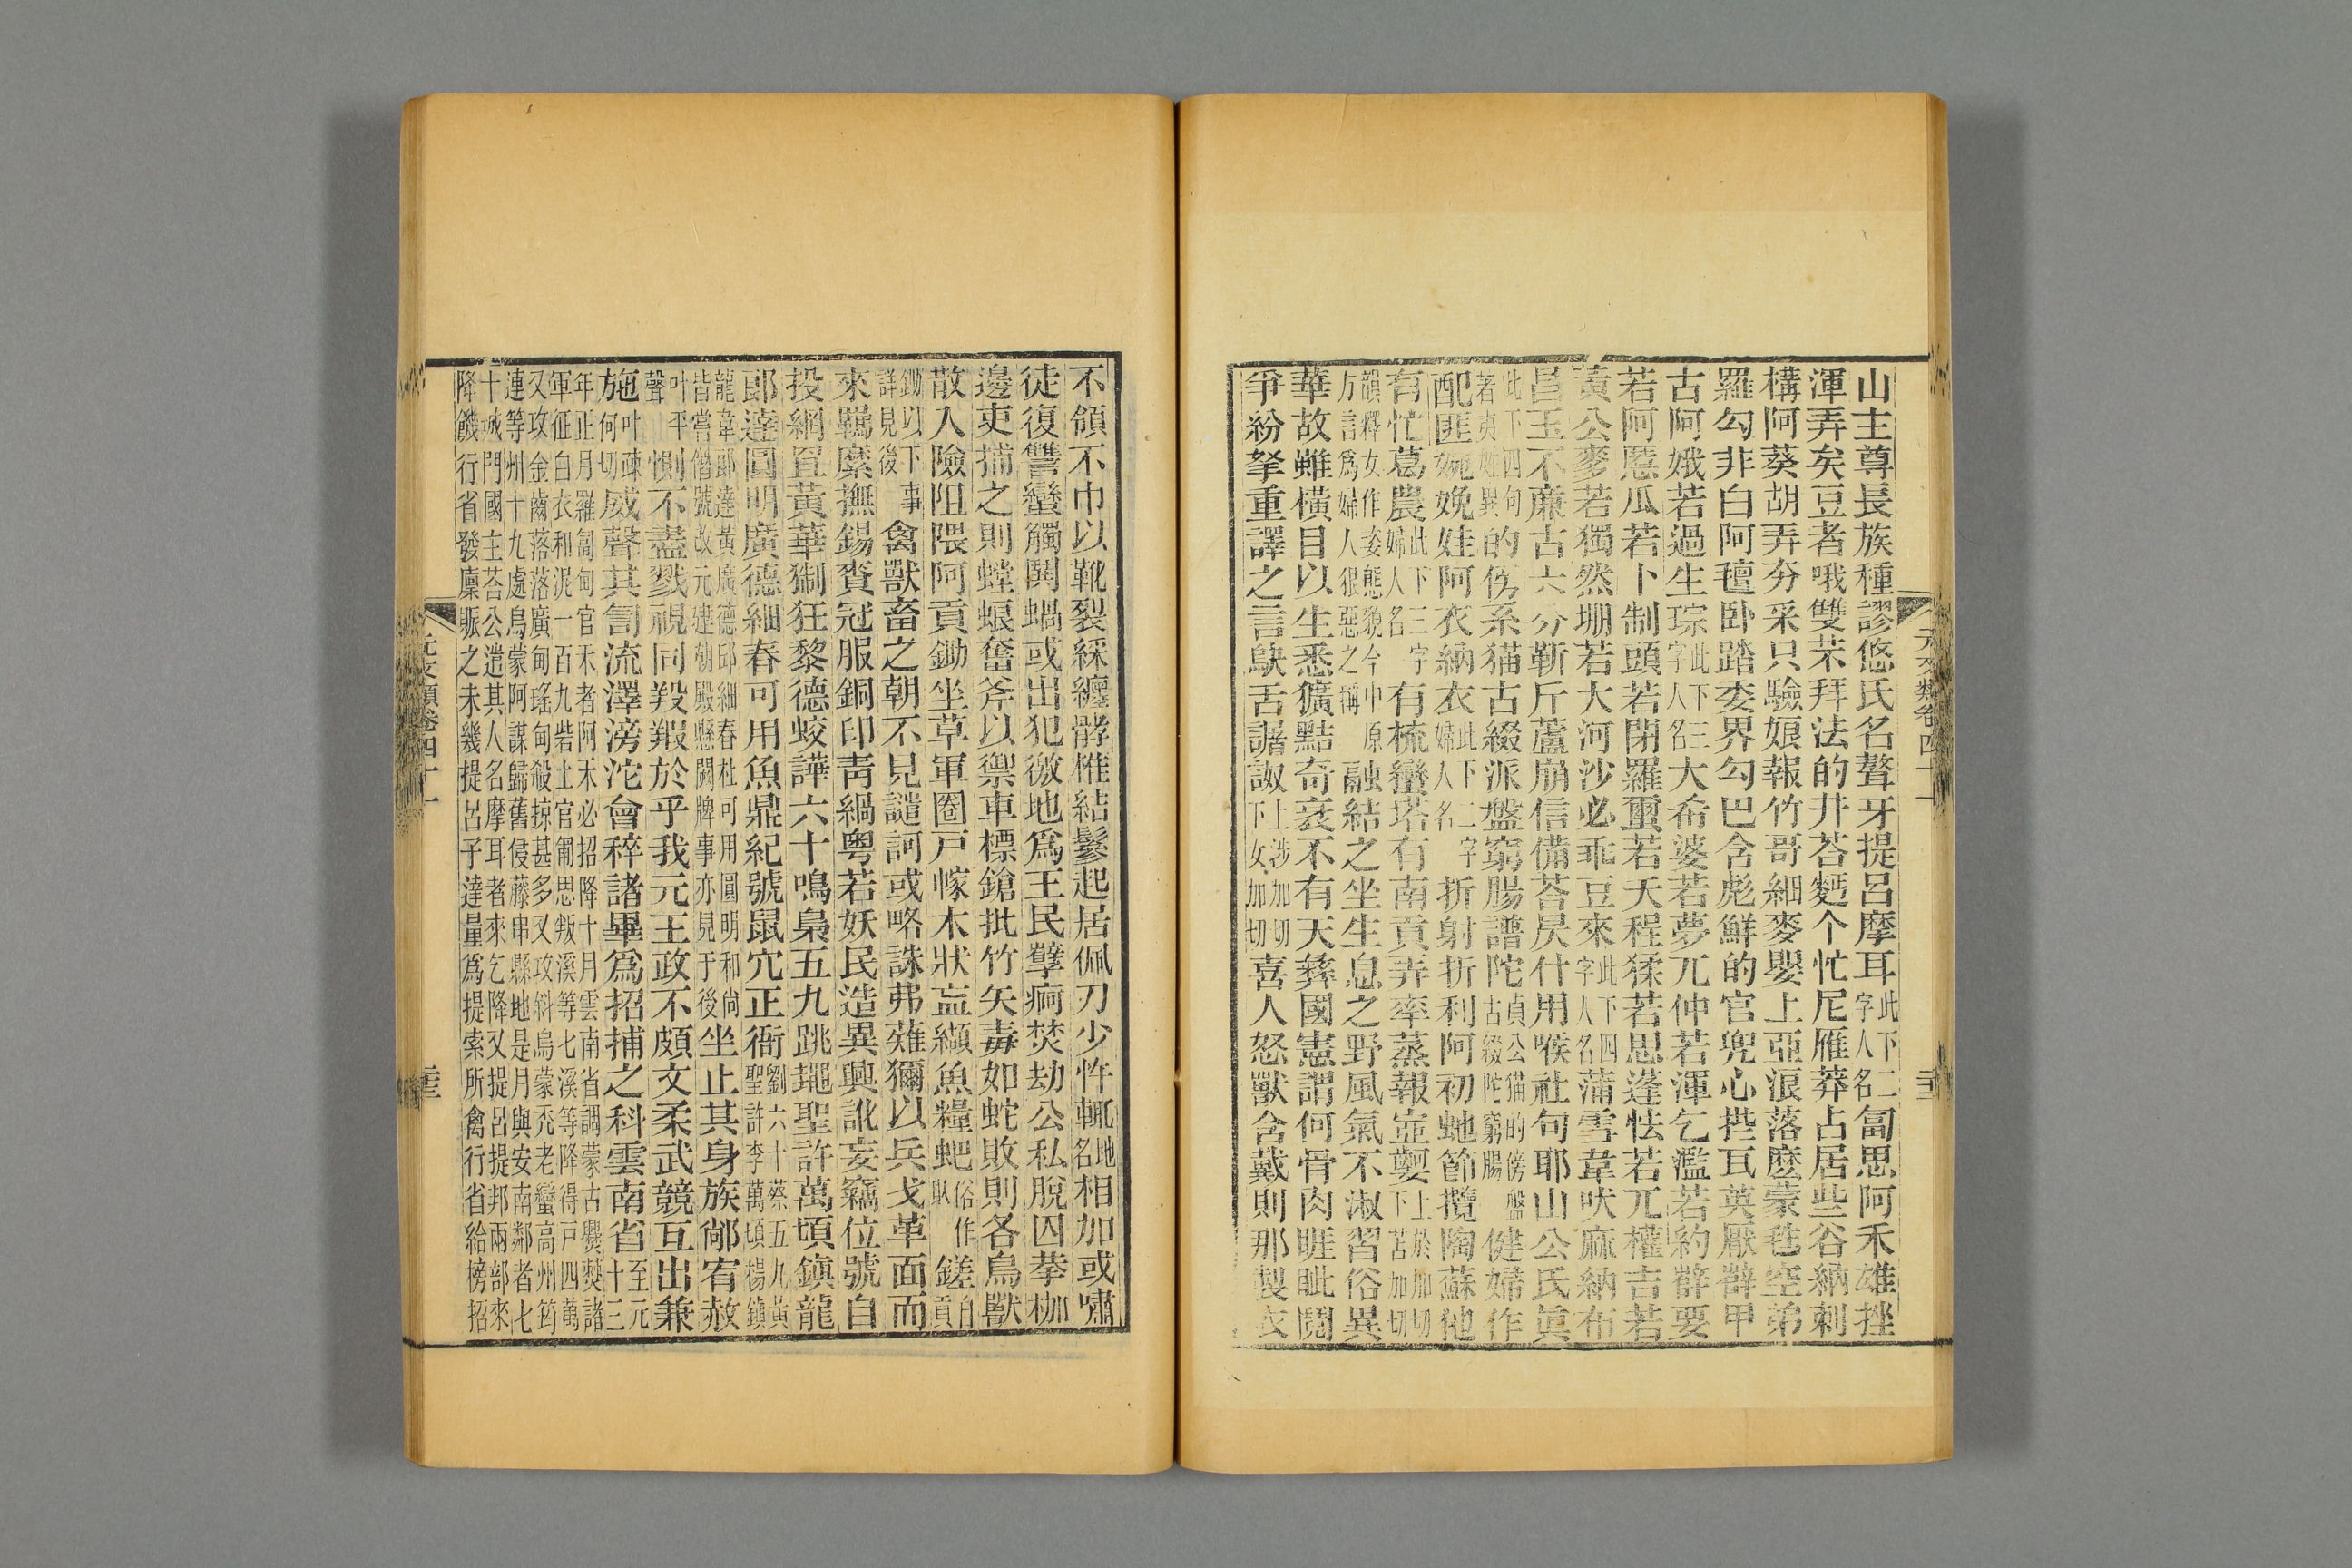 山主尊長族種謬悠氏名聱牙提呂摩耳此下二字人名匐思阿禾雄挫
渾弄矣豆者哦雙茉拜法的井荅麪个忙尼雁莽占居些谷納刺
構阿葵胡弄夯采只驗娘報竹哥細麥嬰上亞浪落麼蒙𤭁空弟
羅勾非白阿𣰽臥踏委界勾巴含彪鮮的官兜心𢱧瓦英厭辥甲
古阿娥若過生琮此下三字人名大希婆若夢兀仲若渾乞濫若約辥要
若阿慝瓜若卜制頭若閉羅璽若天程猱若思蓬怯若兀權吉若
黃公麥若獨然堋若大河沙必乖豆來此下四字人名蒲雪韋吠麻納布
昌玉不薕古六分靳斤蘆崩信備荅昃什用喉社句耶山公氏眞
此下四句著夷姓異的傍系猫古綴派盤窮腸譜陀貞公猫的傍盤古綴陀窮腸健婦作
配匪婉娩娃阿衣納衣此下二字婦人名折射折利阿初虵節攬陶蘇他
有忙葛農此下三字婦人名有梳蠻塔有南貢弄率蒸報
韻釋女作姿態貌今中原方言爲婦人很惡之稱融結之坐生息之野風氣不淑習俗異
華故雖橫目以生悉獷黠奇衺不有天彝國憲謂何骨肉睚眦鬩
爭紛拏重譯之言鴃舌譫詉上涉加切下女加切喜人怒獸含戴則那製衣
元文類卷四十一
不領不巾以靴裂綵纏髀椎結鬖起居佩刀少忤輒地名相加或嘯
徒復讐蠻觸鬩蝸或出犯徼地爲王民孽痾焚劫公私脫囚拲枷
邊吏捕之則螳蜋奮斧以禦車標鎗批竹矢毒如蛇敗則各鳥獸
散入險阻隈阿貢鋤坐草軍圈戶幏木狀衁纈魚糧蚆俗作𧵅鎈自貢
鋤以下事詳見後禽獸畜之朝不見譴訶或略誅弗薙獮以兵戈革面而
來羈縻撫錫賚冠服銅印靑緺粤若妖民造異興訛妄竊位號自
投網罝黃華猘狂黎德蛟譁六十鳴梟五九跳䵷聖許萬頃鎮龍
郎達圓明廣德細春可用魚鼎紀號鼠穴正衙劉六十蔡五九黃聖許李萬頃楊鎮
龍韋郎達黃廣德邱細春杜可用圓明和尚皆嘗僭號改元建朝殿懸闕牌事亦見于後坐止其身族鄰宥赦
叶平聲惻不盡戮視同羖䍧於乎我元王政不頗文柔武競互出兼
施叶疎何切威聲其訇流澤滂沱會稡諸畢爲招捕之科雲南省至元十三
年正月羅匐甸官禾者阿禾必招降十月雲南省調蒙古爨僰諸
軍征白衣和泥一百九砦土官匍思叛溪等七溪等降得戶四萬
又攻金齒落落廣甸瑤甸殺掠甚多又攻斜烏蒙禿老蠻高州筠
連等州十九處烏蒙阿謀歸舊侵藤串縣地是月與安南鄰者七
十城門國主荅公遣其人名摩耳者來乞降又提呂提邦兩部來
降饑行省發廩賑之未幾提呂子達量爲提索所禽行省給榜招
元文類卷四十一